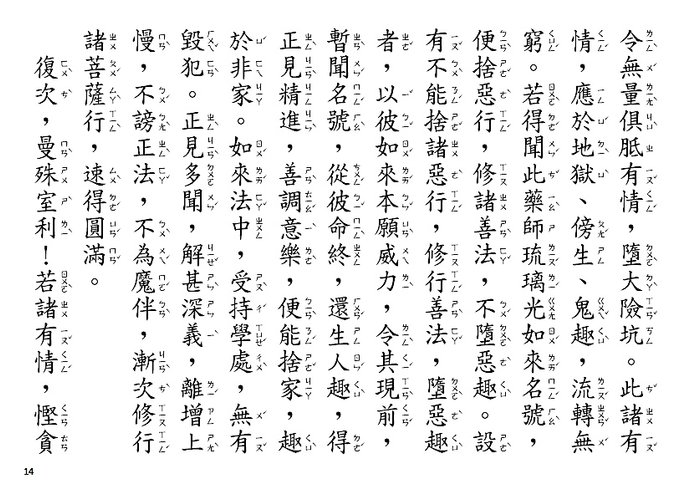 令無量俱胝有情，墮大險坑。此諸有
情，應於地獄、傍生、鬼趣，流轉無
窮。若得聞此藥師琉璃光如來名號，
便捨惡行，修諸善法，不墮惡趣。設
有不能捨諸惡行，修行善法，墮惡趣
者，以彼如來本願威力，令其現前，
暫聞名號，從彼命終，還生人趣，得
正見精進，善調意樂，便能捨家，趣
於非家。如來法中，受持學處，無有
毀犯。正見多聞，解甚深義，離增上
慢，不謗正法，不為魔伴，漸次修行
諸菩薩行，速得圓滿。
復次，曼殊室利！若諸有情，慳貪
14